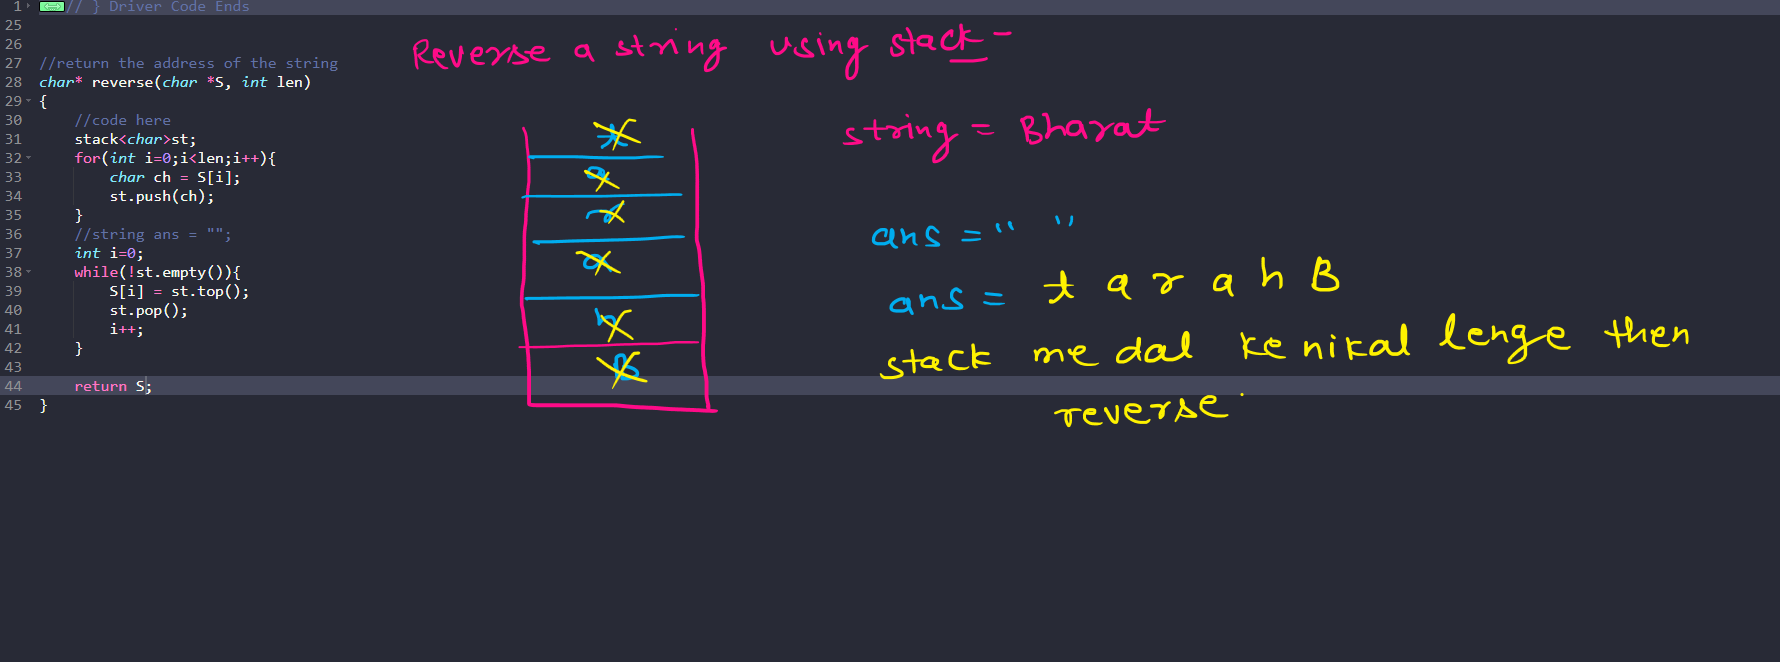 1 // } Driver Code Ends
25
26
27 //return the address of the string
28 char* reverse(char *S, int len)
29 {
30     //code here
31     stack<char>st;
32     for(int i=0;i<len;i++){
33         char ch = S[i];
34         st.push(ch);
35     }
36     //string ans = "";
37     int i=0;
38     while(!st.empty()){
39         S[i] = st.top();
40         st.pop();
41         i++;
42     }
43
44     return S;
45 }
Reverse a string using stack -
t
a
r
a
h
B
string = Bharat
ans = " "
ans = t a r a h B
stack me dal ke nikal lenge then
reverse.